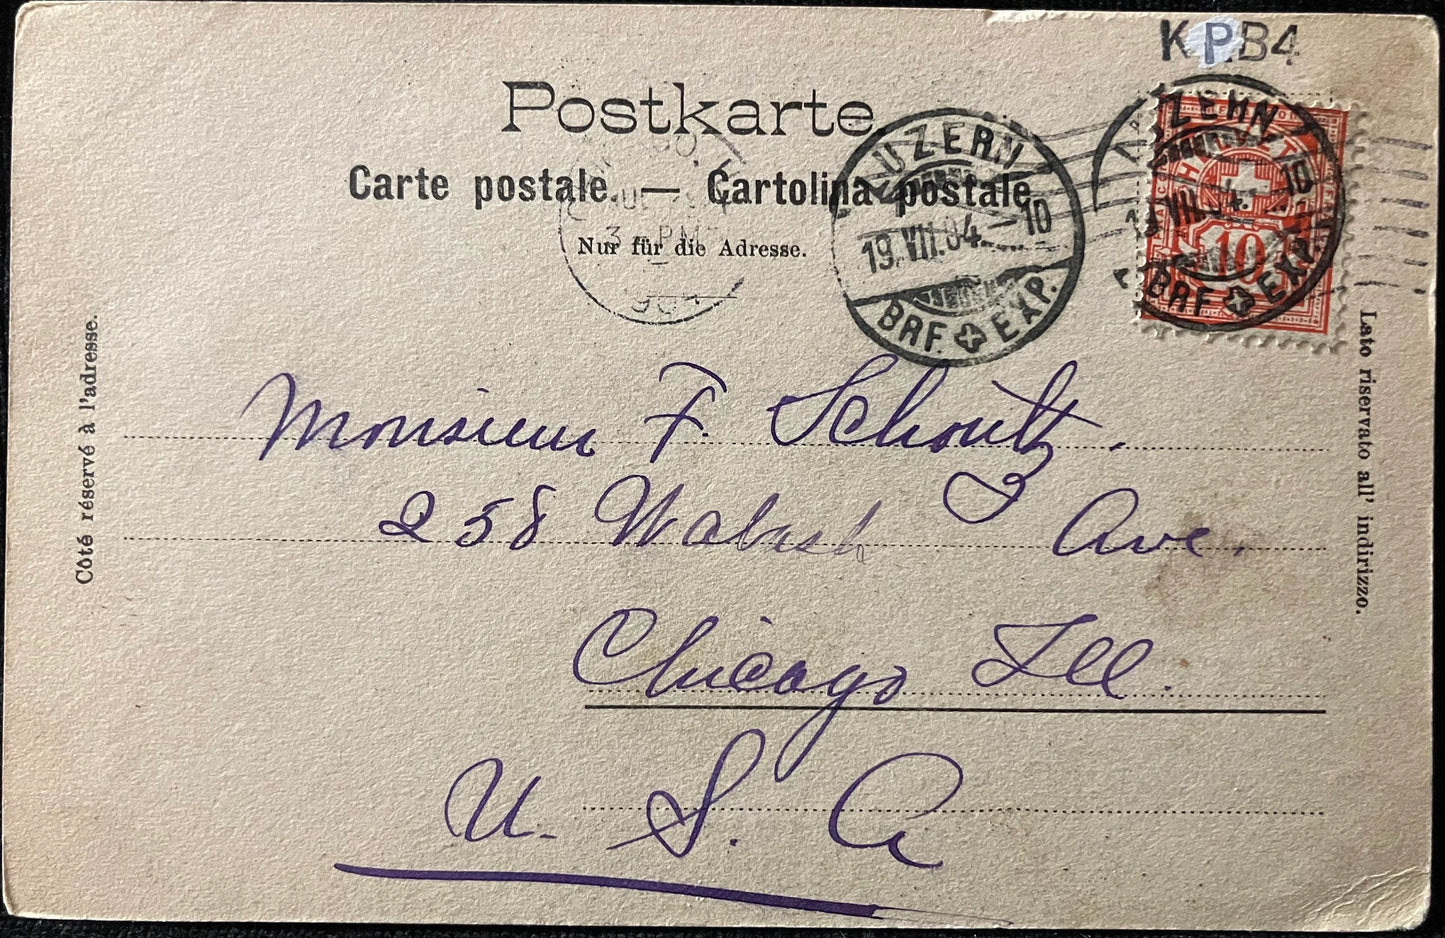 K.P.B4
Postkarte.
Carte postale. — Cartolina postale.
Nur für die Adresse.
LUZERN
19.VII.04.—10
BRF. EXP.
LUZERN
19.VII.04.—10
BRF. EXP.
HELVETIA
10
3 PM
Côté réservé à l'adresse.
Lato riservato all' indirizzo.
Monsieur F. Schoultz.
258 Wabash Ave.
Chicago Ill.
U. S. A